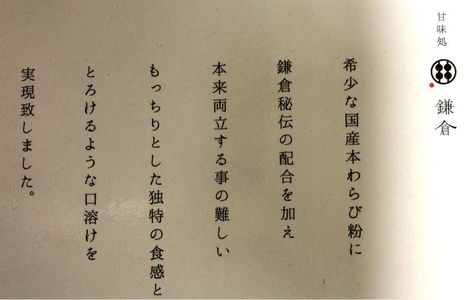 甘味処
鎌倉
希少な国産本わらび粉に
鎌倉秘伝の配合を加え
本来両立する事の難しい
もっちりとした独特の食感と
とろけるような口溶けを
実現致しました。